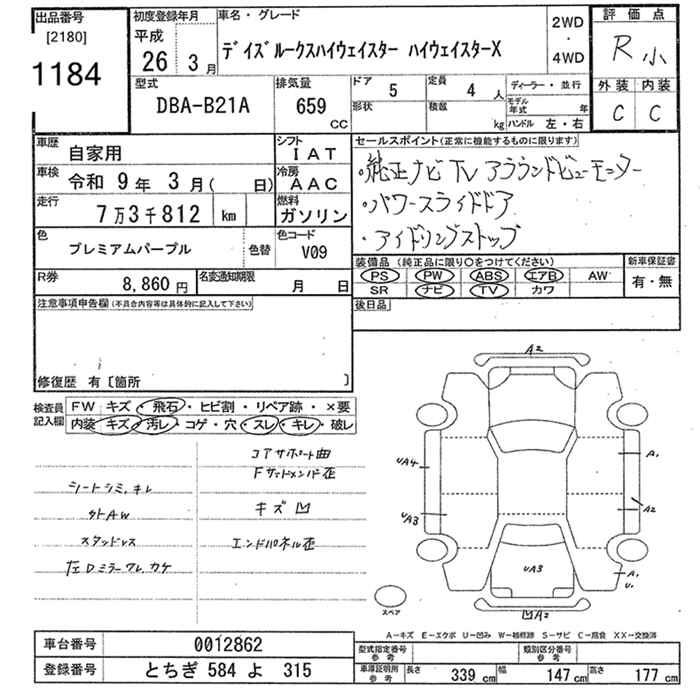 出品番号
[2180]
1184
初度登録年月
平成
26 3月
車名・グレード
デイズルークスハイウェイスター ハイウェイスターX
2WD
・
4WD
評価点
R 小
外装 内装
C C
型式
DBA-B21A
排気量
659
CC
ドア 5
定員 4 人
形状
積載 kg
ディーラー・並行
モデル年式 年
ハンドル 左・右
車歴 自家用
シフト IAT
車検 令和 9年 3月( 日)
冷房 AAC
走行 7万3千812 km
燃料 ガソリン
色 プレミアムパープル 色替
色コード V09
R券 8,860円
名変通知期限 月 日
セールスポイント(正常に機能するものに限ります)
・純正ナビ TV アラウンドビューモニター
・パワースライドドア
・アイドリングストップ
装備品 (純正品に限り○をつけてください)
PS PW ABS エアB AW
SR ナビ TV カワ
新車保証書
有・無
後日品
注意事項申告欄(不具合内容等は具体的に記入して下さい)
修復歴 有〔箇所 〕
検査員記入欄
FW キズ・飛石・ヒビ割・リペア跡・×要
内装 キズ・汚レ・コゲ・穴・スレ・キレ・破レ
コアサポート曲
Fサイドメンバ歪
シートシミ、キレ
キズ 凹
外AW
スタッドレス
エンドパネル歪
左Dミラーワレ、カケ
A2
UA4
A1
UA3
A2
UA3
A1
U1
凹A2
スペア
A-キズ E-エクボ U-凹み W-補修跡 S-サビ C-腐食 XX-交換済
車台番号 0012862
登録番号 とちぎ 584 よ 315
型式指定番号 参考
類別区分番号 参考
車庫証明用 参考
長さ 339 cm 幅 147 cm 高さ 177 cm